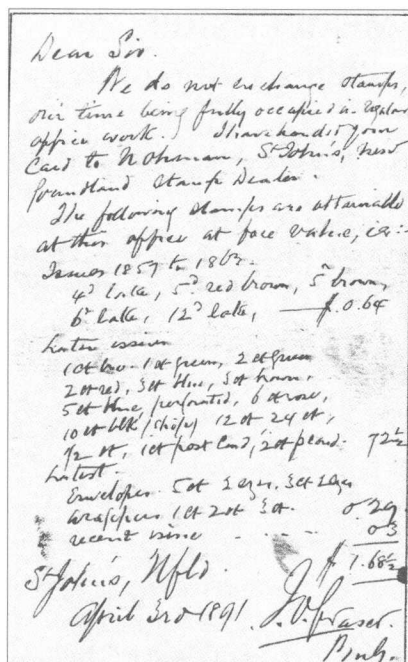 Dear Sir.
We do not exchange stamps,
our time being fully occupied in regular
office work. I have handed your
Card to Nohrman, St John's, New
foundland Stamp Dealer.
The following stamps are obtainable
at this office at face value, viz:-
Issues 1857 to 186
4d lake, 5d red brown, 5d brown,
6d lake, 12d lake, $0.64
Later issues
1ct 1ct green, 2ct green
2ct red, 3ct blue, 3ct brown,
5ct blue perforated, 6ct rose,
10ct blk (ship) 12ct 24ct,
1/2ct, 1ct post Card, 2ct p card. 72½
Latest.
Envelopes 5ct 3ct
Wrappers 1ct 2ct 3ct. 0.29
recent issue 03
$1.68½
St John's, Nfld.
April 3rd 1891 J.O. Fraser.